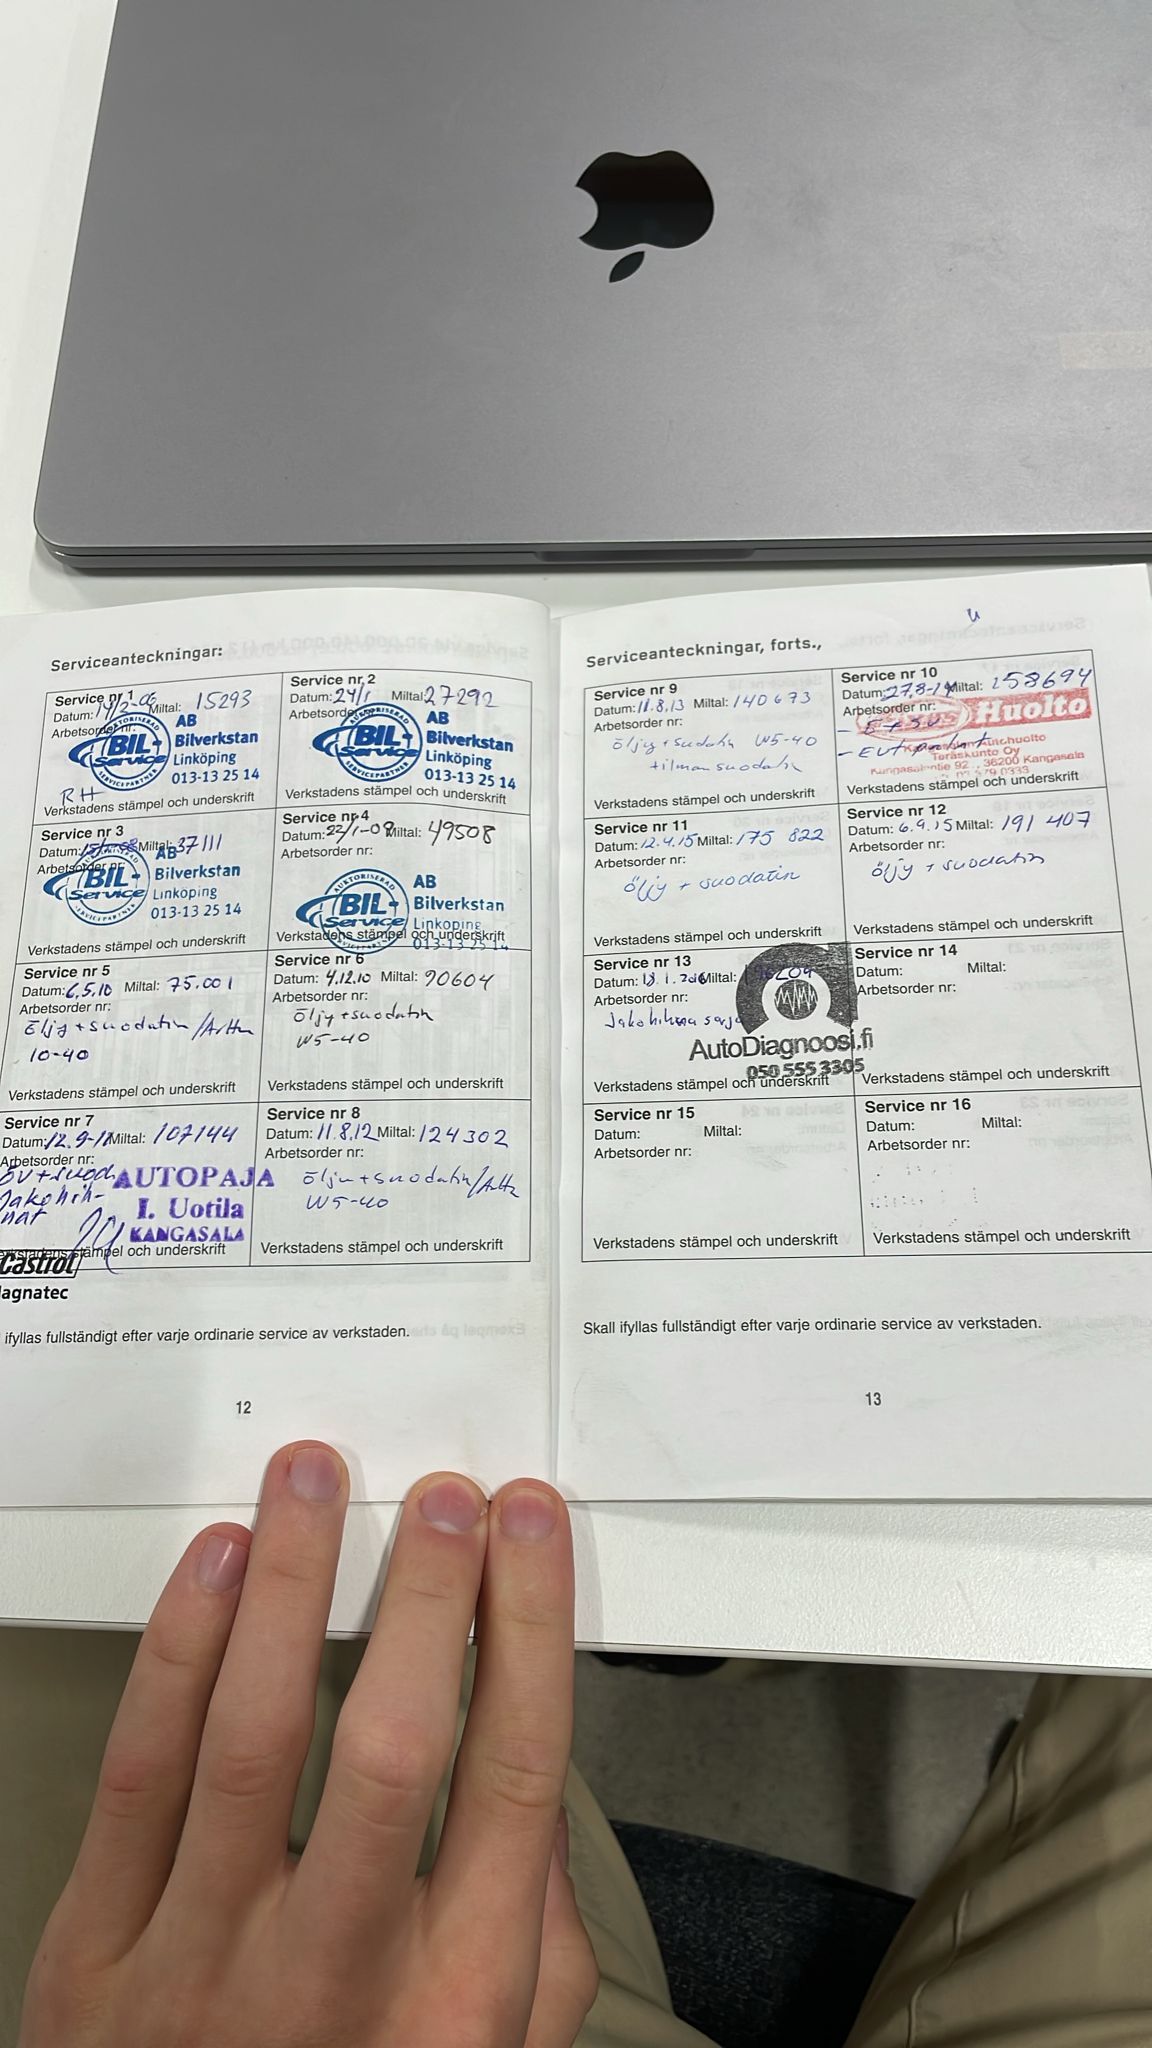 Serviceanteckningar:
Service nr 1
Datum: 14/2-06 Miltal: 15293
Arbetsorder nr:
BIL-
Service
AUKTORISERAD
SERVICEPARTNER
AB
Bilverkstan
Linköping
013-13 25 14
RH
Verkstadens stämpel och underskrift
Service nr 2
Datum: 24/1 Miltal: 27292
Arbetsorder
AUKTORISERAD
BIL-
Service
SERVICEPARTNER
AB
Bilverkstan
Linköping
013-13 25 14
Verkstadens stämpel och underskrift
Service nr 3
Datum: Miltal: 37111
Arbetsorder nr:
BIL-
Service
AB
Bilverkstan
Linköping
013-13 25 14
Verkstadens stämpel och underskrift
Service nr 4
Datum: 22/1-09 Miltal: 49508
Arbetsorder nr:
AUKTORISERAD
BIL-
Service
AB
Bilverkstan
Linköping
013-13 25 14
Verkstadens stämpel och underskrift
Service nr 5
Datum: 6.5.10 Miltal: 75.001
Arbetsorder nr:
Öljy + suodatin /Arttu
10-40
Verkstadens stämpel och underskrift
Service nr 6
Datum: 4.12.10 Miltal: 90604
Arbetsorder nr:
Öljy + suodatin
W5-40
Verkstadens stämpel och underskrift
Service nr 7
Datum: 12.9-11 Miltal: 107144
Arbetsorder nr:
öv + suod
Jakohih-
nat
AUTOPAJA
I. Uotila
KANGASALA
Verkstadens stämpel och underskrift
Castrol
agnatec
Service nr 8
Datum: 11.8.12 Miltal: 124302
Arbetsorder nr:
Öljy + suodatin /Arttu
W5-40
Verkstadens stämpel och underskrift
ifyllas fullständigt efter varje ordinarie service av verkstaden.
12
Serviceanteckningar, forts.,
Service nr 9
Datum: 11.8.13 Miltal: 140673
Arbetsorder nr:
öljy + suodatin W5-40
+ ilmansuodatin
Verkstadens stämpel och underskrift
Service nr 10
Datum: 27.8-14 Miltal: 158694
Arbetsorder nr:
Huolto
Autohuolto
Teräskunto Oy
Kangasalantie 92 , 36200 Kangasala
Verkstadens stämpel och underskrift
Service nr 11
Datum: 12.4.15 Miltal: 175 822
Arbetsorder nr:
öljy + suodatin
Verkstadens stämpel och underskrift
Service nr 12
Datum: 6.9.15 Miltal: 191 407
Arbetsorder nr:
öljy + suodatin
Verkstadens stämpel och underskrift
Service nr 13
Datum: 18.1.2016 Miltal:
Arbetsorder nr:
Jakohihna sarja
AutoDiagnoosi.fi
050 555 3305
Verkstadens stämpel och underskrift
Service nr 14
Datum: Miltal:
Arbetsorder nr:
Verkstadens stämpel och underskrift
Service nr 15
Datum: Miltal:
Arbetsorder nr:
Verkstadens stämpel och underskrift
Service nr 16
Datum: Miltal:
Arbetsorder nr:
Verkstadens stämpel och underskrift
Skall ifyllas fullständigt efter varje ordinarie service av verkstaden.
13